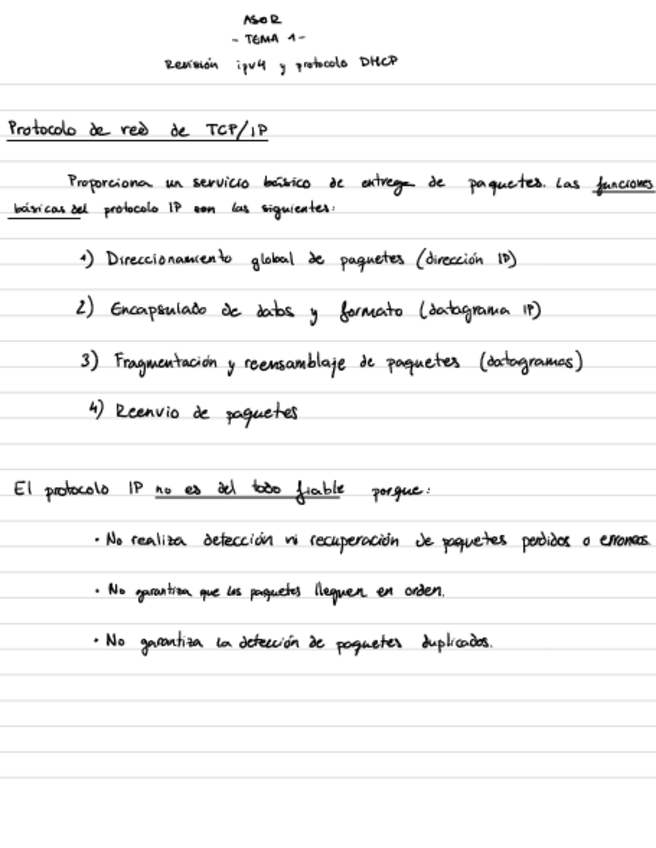 ASOR
- TEMA 1-
Revisión ipv4 y protocolo DHCP
Protocolo de red de TCP/IP
Proporciona un servicio básico de entrega de paquetes. Las funciones
básicas del protocolo IP son las siguientes:
1) Direccionamiento global de paquetes (dirección IP)
2) Encapsulado de datos y formato (datagrama IP)
3) Fragmentación y reensamblaje de paquetes (datagramas)
4) Reenvio de paquetes
El protocolo IP no es del todo fiable porque:
· No realiza detección ni recuperación de paquetes perdidos o erroneos.
· No garantiza que los paquetes lleguen en orden.
· No garantiza la detección de paquetes duplicados.